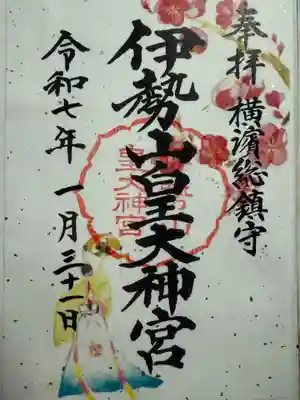 奉拝
横濱総鎮守
伊勢山皇大神宮
令和七年 一月三十一日
皇大神宮